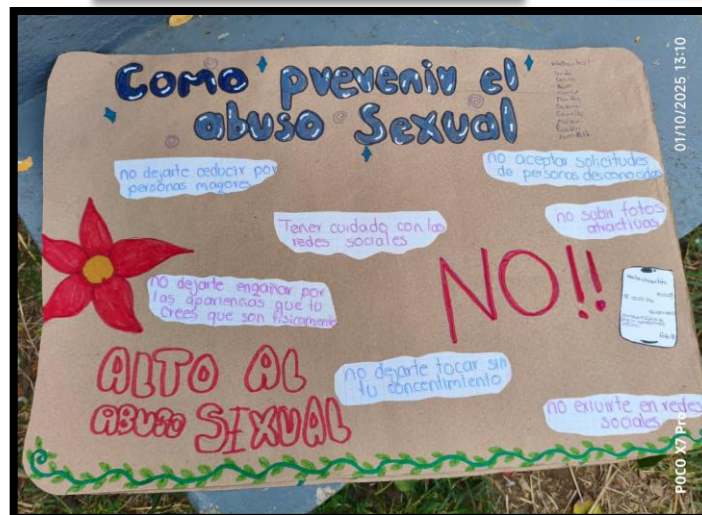 Como prevenir el
abuso Sexual
no dejarte ceducir por
personas magores
no aceptar solicitudes
de personas desconocidas
Tener cuidado con las
redes sociales
no subir fotos
atractivas
no dejarte engañar por
las apariencias que tu
crees que son fisicamente
NO!!
ALTO AL
ABUSO SEXUAL
no dejarte tocar sin
tu concentimiento
no exivirte en redes
sociales
01/10/2025 13:10
POCO X7 Pro